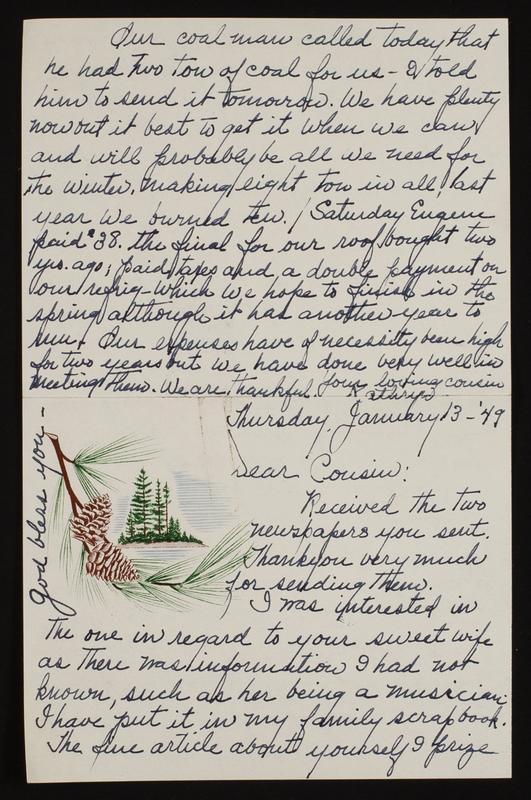 Our coal man called today that
he had two ton of coal for us - I told
him to send it tomorrow. We have plenty
now but it best to get it when we can
and will probably be all we need for
the winter, making eight ton in all, last
year we burned ten. / Saturday Eugene
paid $38. the final for our roof bought two
yrs. ago; paid taxes and a double payment on
our refrig - which we hope to finish in the
spring although it has another year to
run. Our expenses have of necessity been high
for two years but we have done very well in
meeting them. We are thankful. Your loving cousin
Kathryn
God bless you -
Thursday, January 13 - '49
Dear Cousin:
Received the two
newspapers you sent.
Thank you very much
for sending them.
I was interested in
the one in regard to your sweet wife
as there was information I had not
known, such as her being a musician,
I have put it in my family scrapbook.
The fine article about yourself I prize